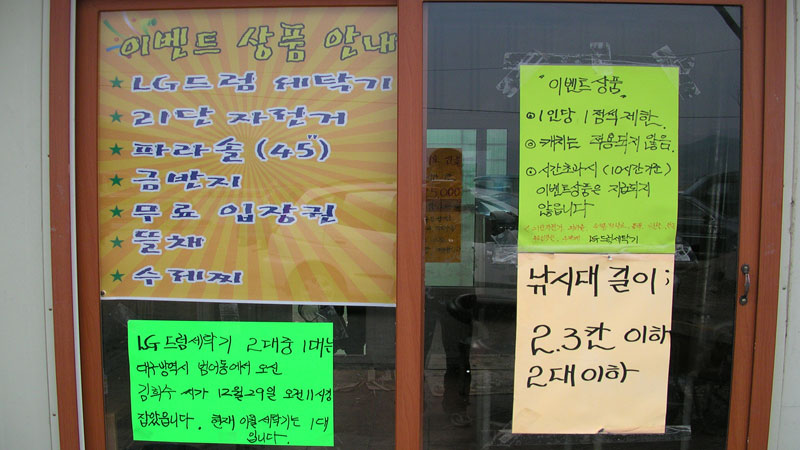 이벤트 상품 안내
★ LG드럼 세탁기
★ 리단 자전거
★ 파라솔 (45")
★ 금반지
★ 무료 입장권
★ 뜰채
★ 수제찌
LG 드럼세탁기 2대중 1대는
대구광역시 범어동에서 오신
김희수 씨가 12월 29일 오전 11시경
잡았읍니다. 현재 이벨세탁기는 1대
입니다.
"이벤트 상품"
⊙ 1인당 1점씩 제한.
⊙ 캐치는 적용되지 않음.
⊙ 시간초과시 (10시간기준)
이벤트상품은 지급되지
않읍니다
LG드럼세탁기
낚시대 길이;
2.3칸 이하
2대이하